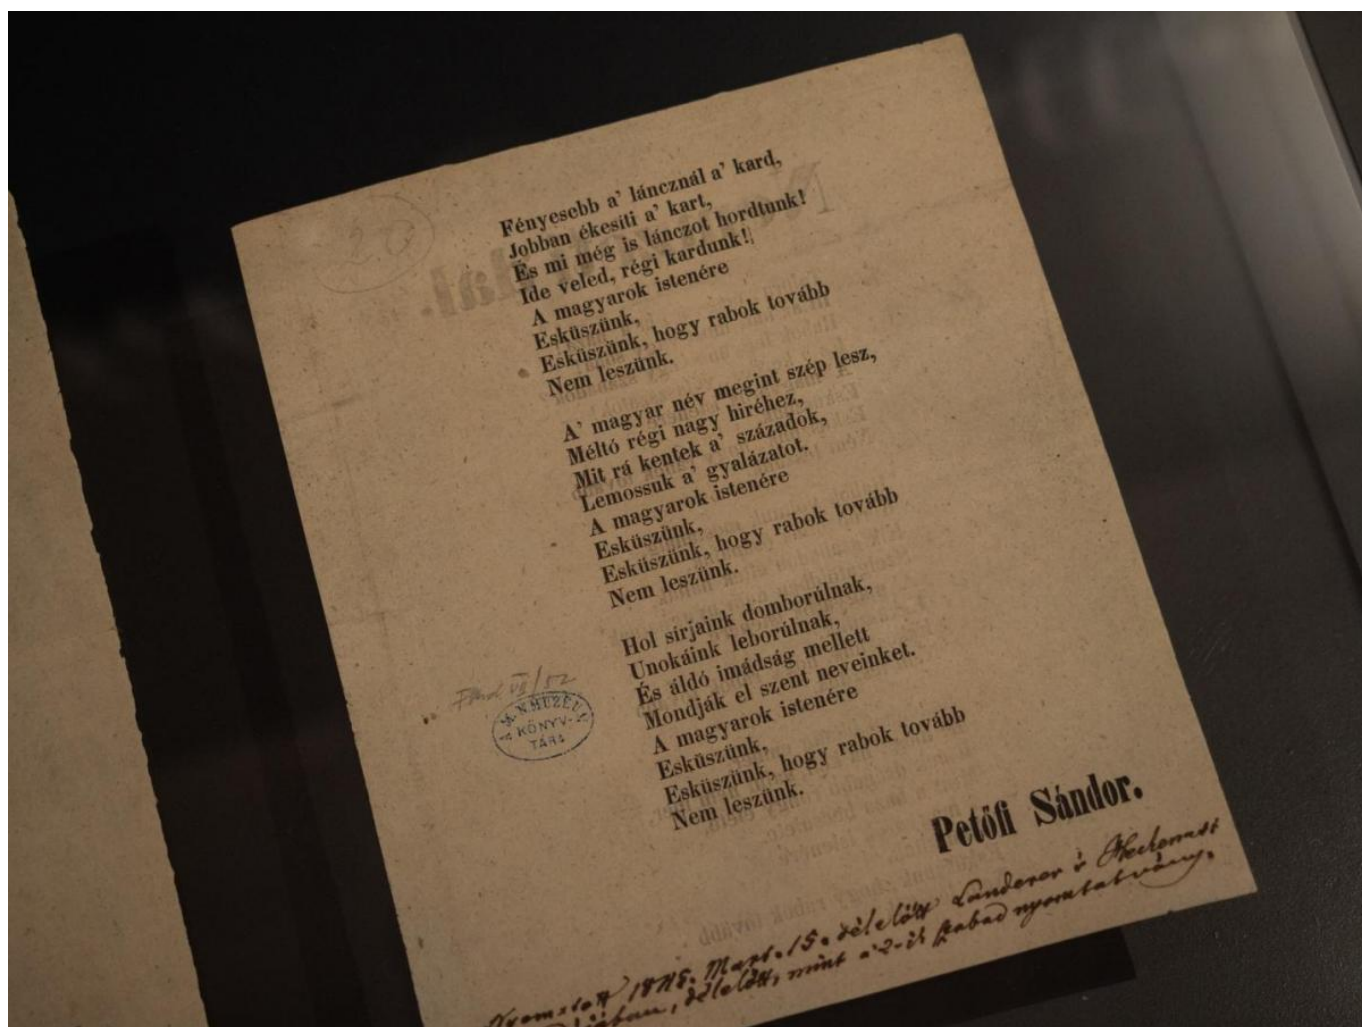 Fényesebb a' láncznál a' kard,
Jobban ékesiti a' kart,
És mi még is lánczot hordtunk!
Ide veled, régi kardunk!
A magyarok istenére
Esküszünk,
Esküszünk, hogy rabok tovább
Nem leszünk.
A' magyar név megint szép lesz,
Méltó régi nagy hiréhez,
Mit rá kentek a' századok,
Lemossuk a' gyalázatot.
A magyarok istenére
Esküszünk,
Esküszünk, hogy rabok tovább
Nem leszünk.
Hol sírjaink domborúlnak,
Unokáink leborúlnak,
És áldó imádság mellett
Mondják el szent neveinket.
A magyarok istenére
Esküszünk,
Esküszünk, hogy rabok tovább
Nem leszünk.
Petőfi Sándor.
A M. N. MUZEUM
KÖNYV-
TÁRA
Nyomatott 1848. Mart. 15. délelőtt Landerer és Heckenast
délelőtt, mint a' 2-ik szabad nyomtatvány.